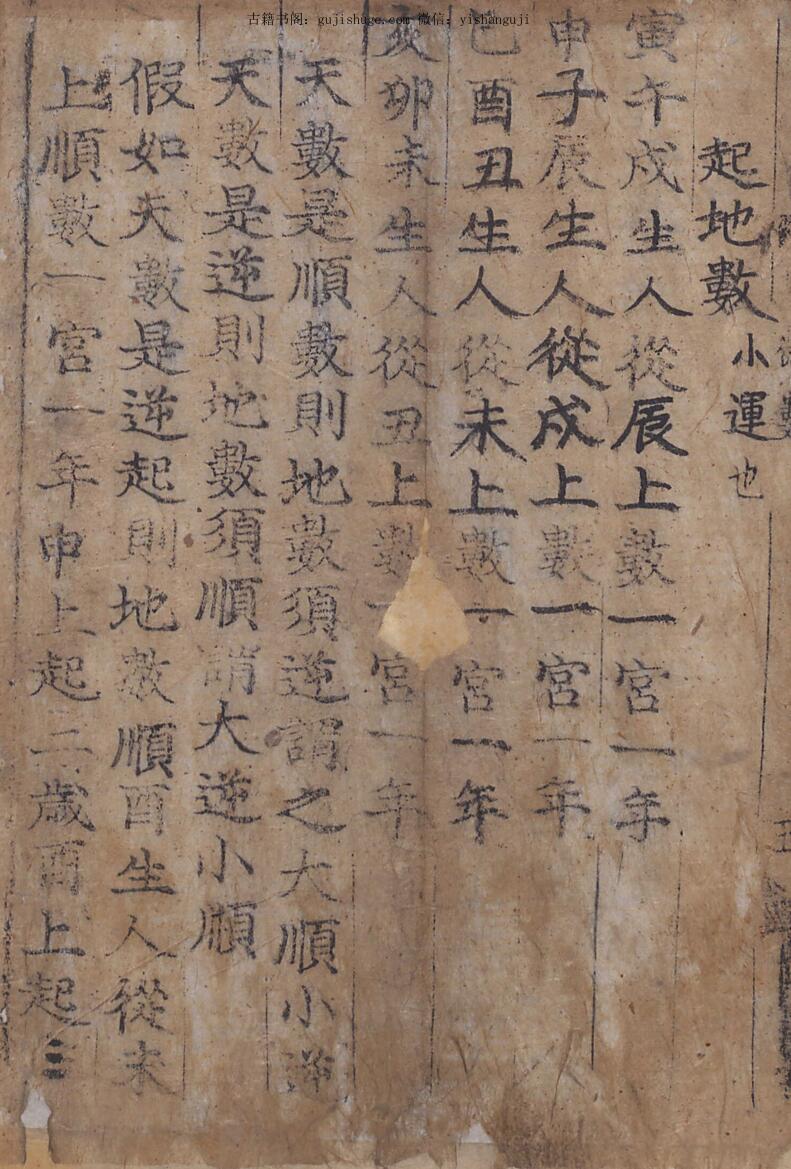 古籍书阁：gujishuge.com 微信：yishanguji
起地數 小運也
寅午戌生人從辰上數一宮一年
申子辰生人從戌上數一宮一年
巳酉丑生人從未上數一宮一年
亥卯未生人從丑上數宮一年
天數是順數則地數須逆謂之大順小逆
天數是逆則地數須順謂大逆小順
假如天數是逆起則地數順酉生人從未
上順數一宮一年申上起二歲酉上起三